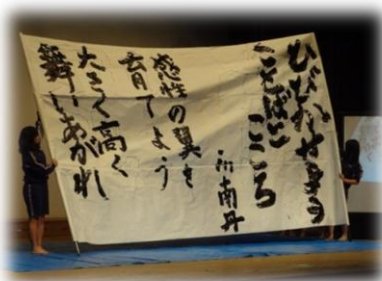 ひびかせよう
ことばと こころ
in南丹
感性の翼を
育てよう
たかく高く
舞いあがれ